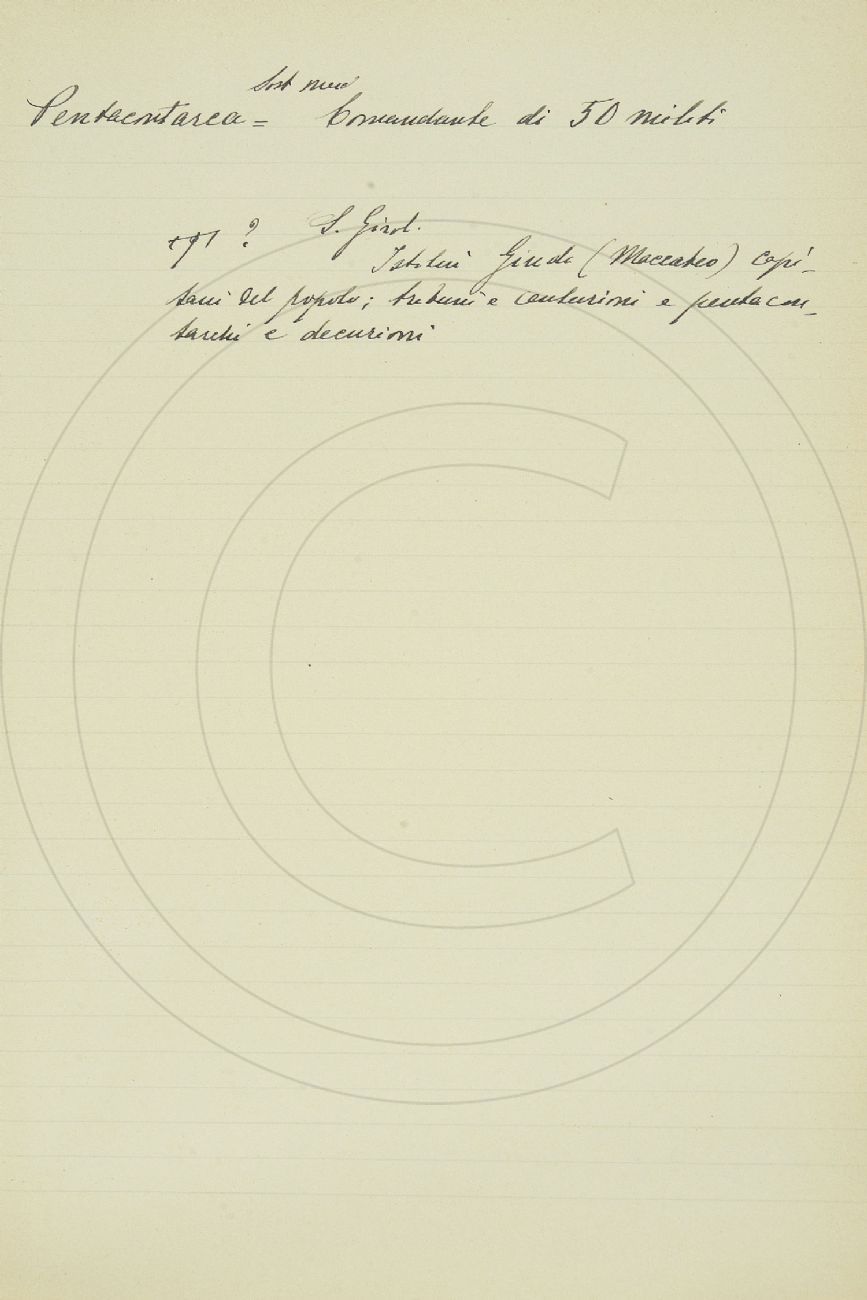 Sost
Pentacontarca = Comandante di 50 militi
? S. Girol.
Istituì Giuda (Maccabeo) capi-
tani del popolo; tribuni e centurioni e pentacon-
tarchi e decurioni